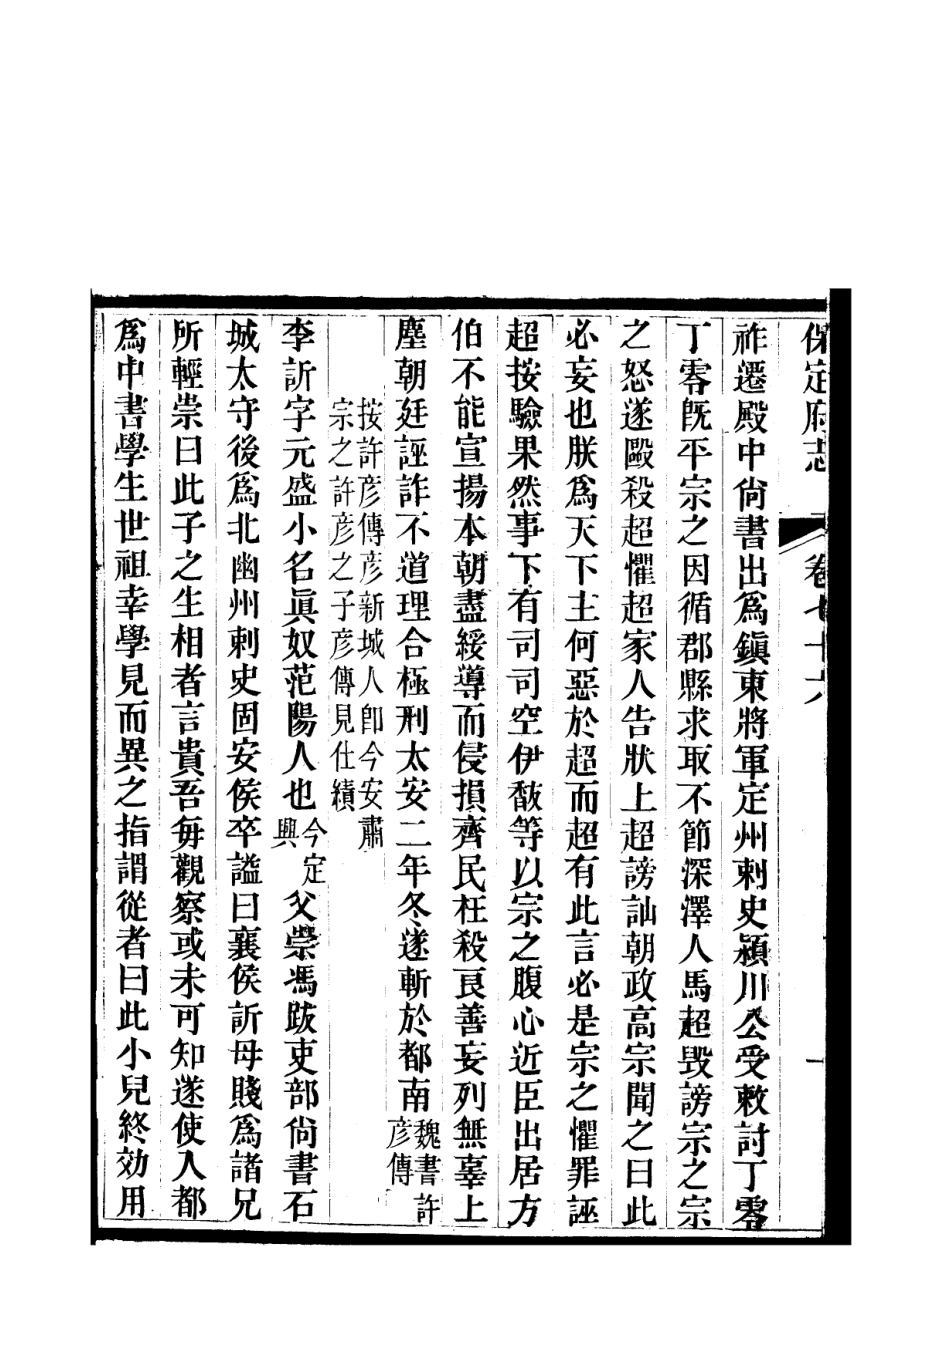 保定府志 卷七十六 一
祚遷殿中尙書出爲鎭東將軍定州刺史潁川公受敕討丁零
丁零旣平宗之因循郡縣求取不節深澤人馬超毀謗宗之宗
之怒遂毆殺超懼超家人告狀上超謗訕朝政高宗聞之曰此
必妄也朕爲天下主何惡於超而超有此言必是宗之懼罪誣
超按驗果然事下有司司空伊馛等以宗之腹心近臣出居方
伯不能宣揚本朝盡綏導而侵損齊民枉殺良善妄列無辜上
塵朝廷誣詐不道理合極刑太安二年冬遂斬於都南魏書許
彦傳
按許彦傳彦新城人卽今安肅
宗之許彦之子彦傳見仕績
李訢字元盛小名眞奴范陽人也今定
興父崇馮跋吏部尙書石
城太守後爲北幽州刺史固安侯卒謚曰襄侯訢母賤爲諸兄
所輕崇曰此子之生相者言貴吾每觀察或未可知遂使入都
爲中書學生世祖幸學見而異之指謂從者曰此小兒終効用